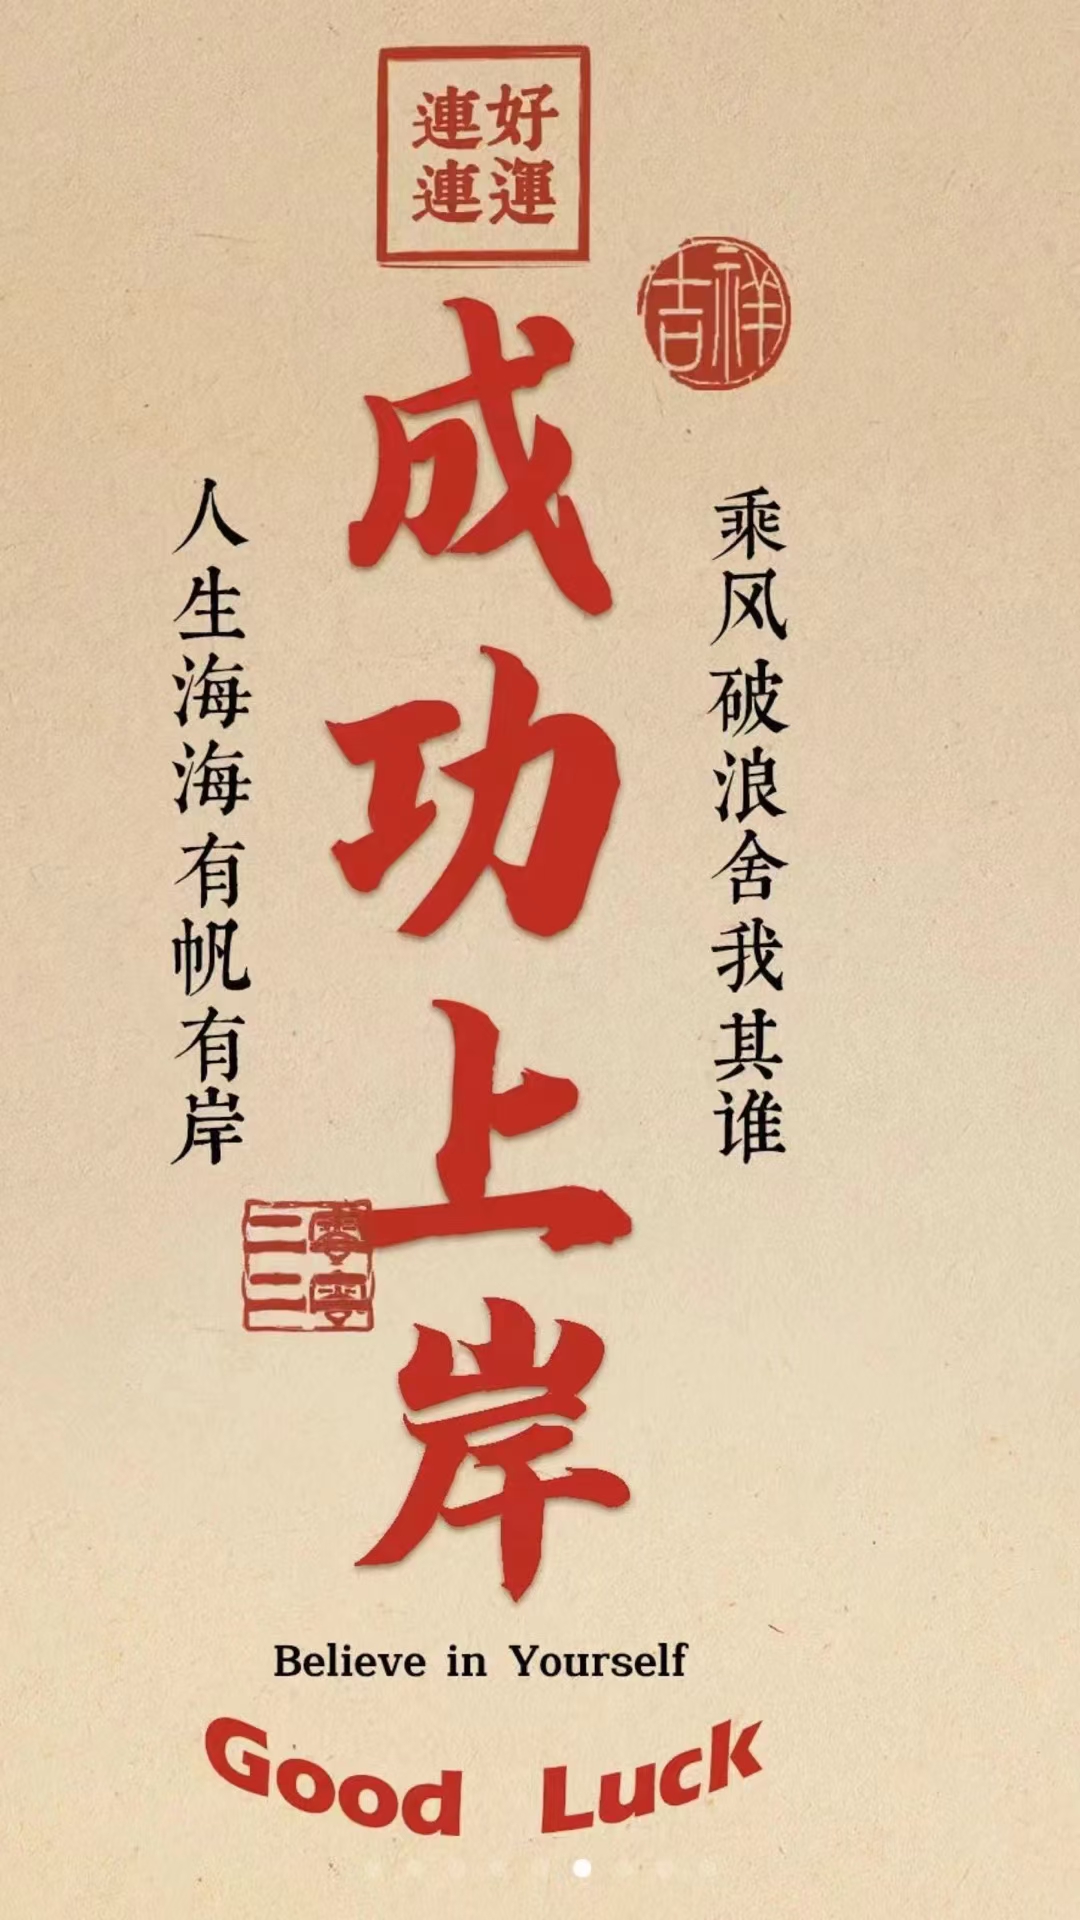 好運
連連
吉祥
成功上岸
乘风破浪舍我其谁
人生海海有帆有岸
二零
二
Believe in Yourself
Good Luck